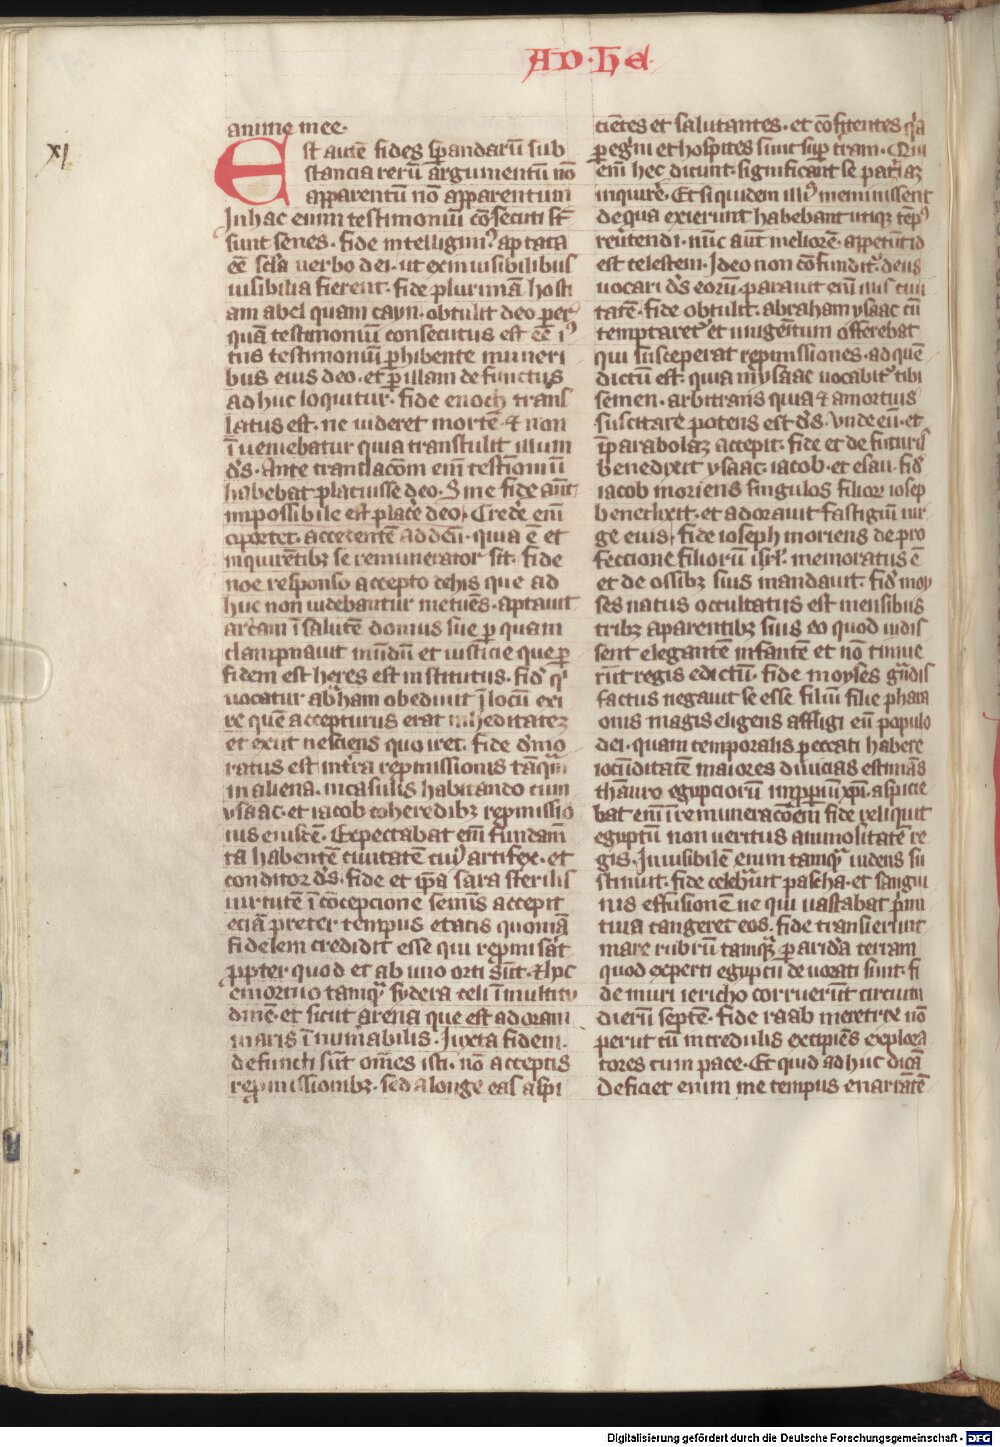 AD·hE
XI
anime mee·
Est autē fides sperandarū sub
stancia rerū argumentū nō
apparentū nō apparentum
In hac enim testimoniū cōsecuti st̄
sunt senes· fide intelligimꝰ aptata
eē scl̄a uerbo dei· ut ex inuisibilibus
uisibilia fierent· fide plurimā hosti
am abel quam cayn· obtulit deo per
quā testimoniū consecutus est eē iꝰ
tus testimoniū phibente muneri
bus eius deo· et p illam defunctus
adhuc loquitur· fide enoch trans
latus est· ne uideret mortē ⁊ non
īueniebatur quia transtulit illum
dꝰs· Ante translacōm enī testimoniū
habebat placuisse deo· Sine fide aūt
impossibile est placē deo· Credē enī
oportet· accedentē ad deū· quia ē et
inquirētibꝫ se remunerator sit· fide
noe responso accepto de hiis que ad
huc non uidebantur metuēs· aptauit
archam ī salutē domus sue p quam
dampnauit mūdū et iusticie que p
fidem est heres est institutus· fid̄ qͥ
uocatur abͬham obediuit ī locū exi
re quē accepturus erat in heditateꝫ
et exiit nesciens quo iret· fide d̄mo
ratus est in tr̄a repmissionis tāqͣm
in aliena· in casulis habitando cum
ysaac· et iacob coheredibꝫ repmissio
nis eiusdē· Expectabat enī fundam̄
ta habentē ciuitatē cuiꝰ artifex· et
conditor dꝰs· fide et ip̄a sara sterilis
uirtutē ī cōcepcione semīs accepit
eciā preter tempus etatis quoniā
fidelem credidit esse qui repmisat̄
ppter quod et ab uno orti sūt· ⁊ hoc
emortuo tamqͣ sydera celi ī multitu
dinē· et sicut arena que est ad oram
maris ī nūabilis· Iuxta fidem·
defuncti sūt om̄es isti· nō acceptis
repmissionibꝫ· sed a longe eas aspi
ciētes et salutantes· et cōfitentes qͥa
pegͥni et hospites sunt sup tr̄am· Qui
enī hec dicunt· significant se patͥaꝫ
inquire· Et siquidem illiꝰ meminissent
de qua exierunt habebant utiqꝫ tēpꝰ
reūtendi· nūc aūt meliorē· appetūt id
est celestem· Ideo non cōfunditͬ deus
uocari dꝰs eorū· parauit enī illis ciui
tatē· fide obtulit abraham ysaac cū
temptaretͬ et unigenitum offerebat
qui susceperat repmissiones· ad quē
dictū est· quia in ysaac uocabitͬ tibi
semen· arbitrans quia ⁊ a mortuis
suscitare potens est dꝰs· vnde eū· et
ī parabolaꝫ accepit· fide et de futuris
benedixit ysaac· iacob· et esau· fid̄
iacob moriens singulos filioꝝ iosep
benedixit· et adorauit fastigiū uir
ge eius· fide ioseph moriens de pro
feccione filiorū isrl̄· memoratus ē
et de ossibꝫ suis mandauit· fid̄ moy
ses natus occultatus est mensibus
tribꝫ a parentibꝫ suis eo quod uidis
sent elegantē infantē et nō timue
rūt regis edictū· fide moyses gͣndis
factus negauit se esse filiū filie phara
onis magis eligens affligi cū populo
dei· quam temporalis peccati habere
iocūditatē maiores diuicias estimās
thāuro egypciorū inpperiū xp̄i· aspicie
bat enī ī remuneracōem fide reliquit
egyptū non ueritus animositatē re
gis· Inuisibilē enim tamqͣ uidens su
stinuit· fide celebͣuit pascha· et sangui
nis effusionē ne qui uastabat pͥmi
tiua tangeret eos· fide transierunt
mare rubrū tamqͣ p aridā terram
quod experti egyptii deuorati sunt· fi
de muri iericho corruerūt circuitu
dierū septē· fide raab meretrix nō
periit cū incredulis excipiēs explora
tores cum pace· Et quid adhuc dicā
deficiet enim me tempus enarrātē
Digitalisierung gefördert durch die Deutsche Forschungsgemeinschaft - DFG